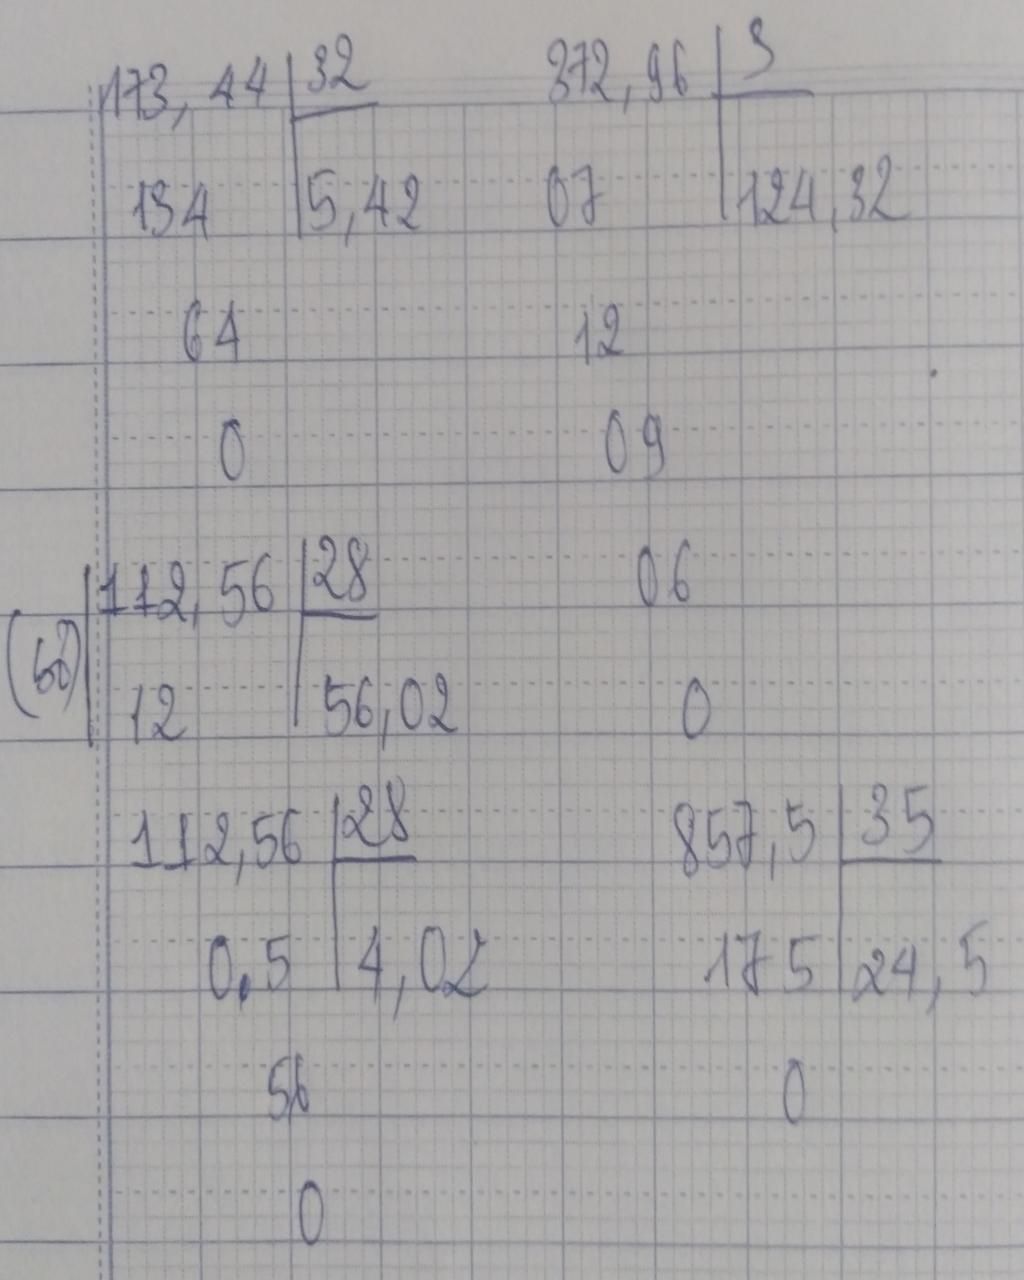 173,44 32 372,96 3
134 5,42 07 124,32
64 12
0 09
112,56 28 06
(bỏ) 12 56,02 0
112,56 28 857,5 35
0,5 4,02 175 24,5
56 0
0